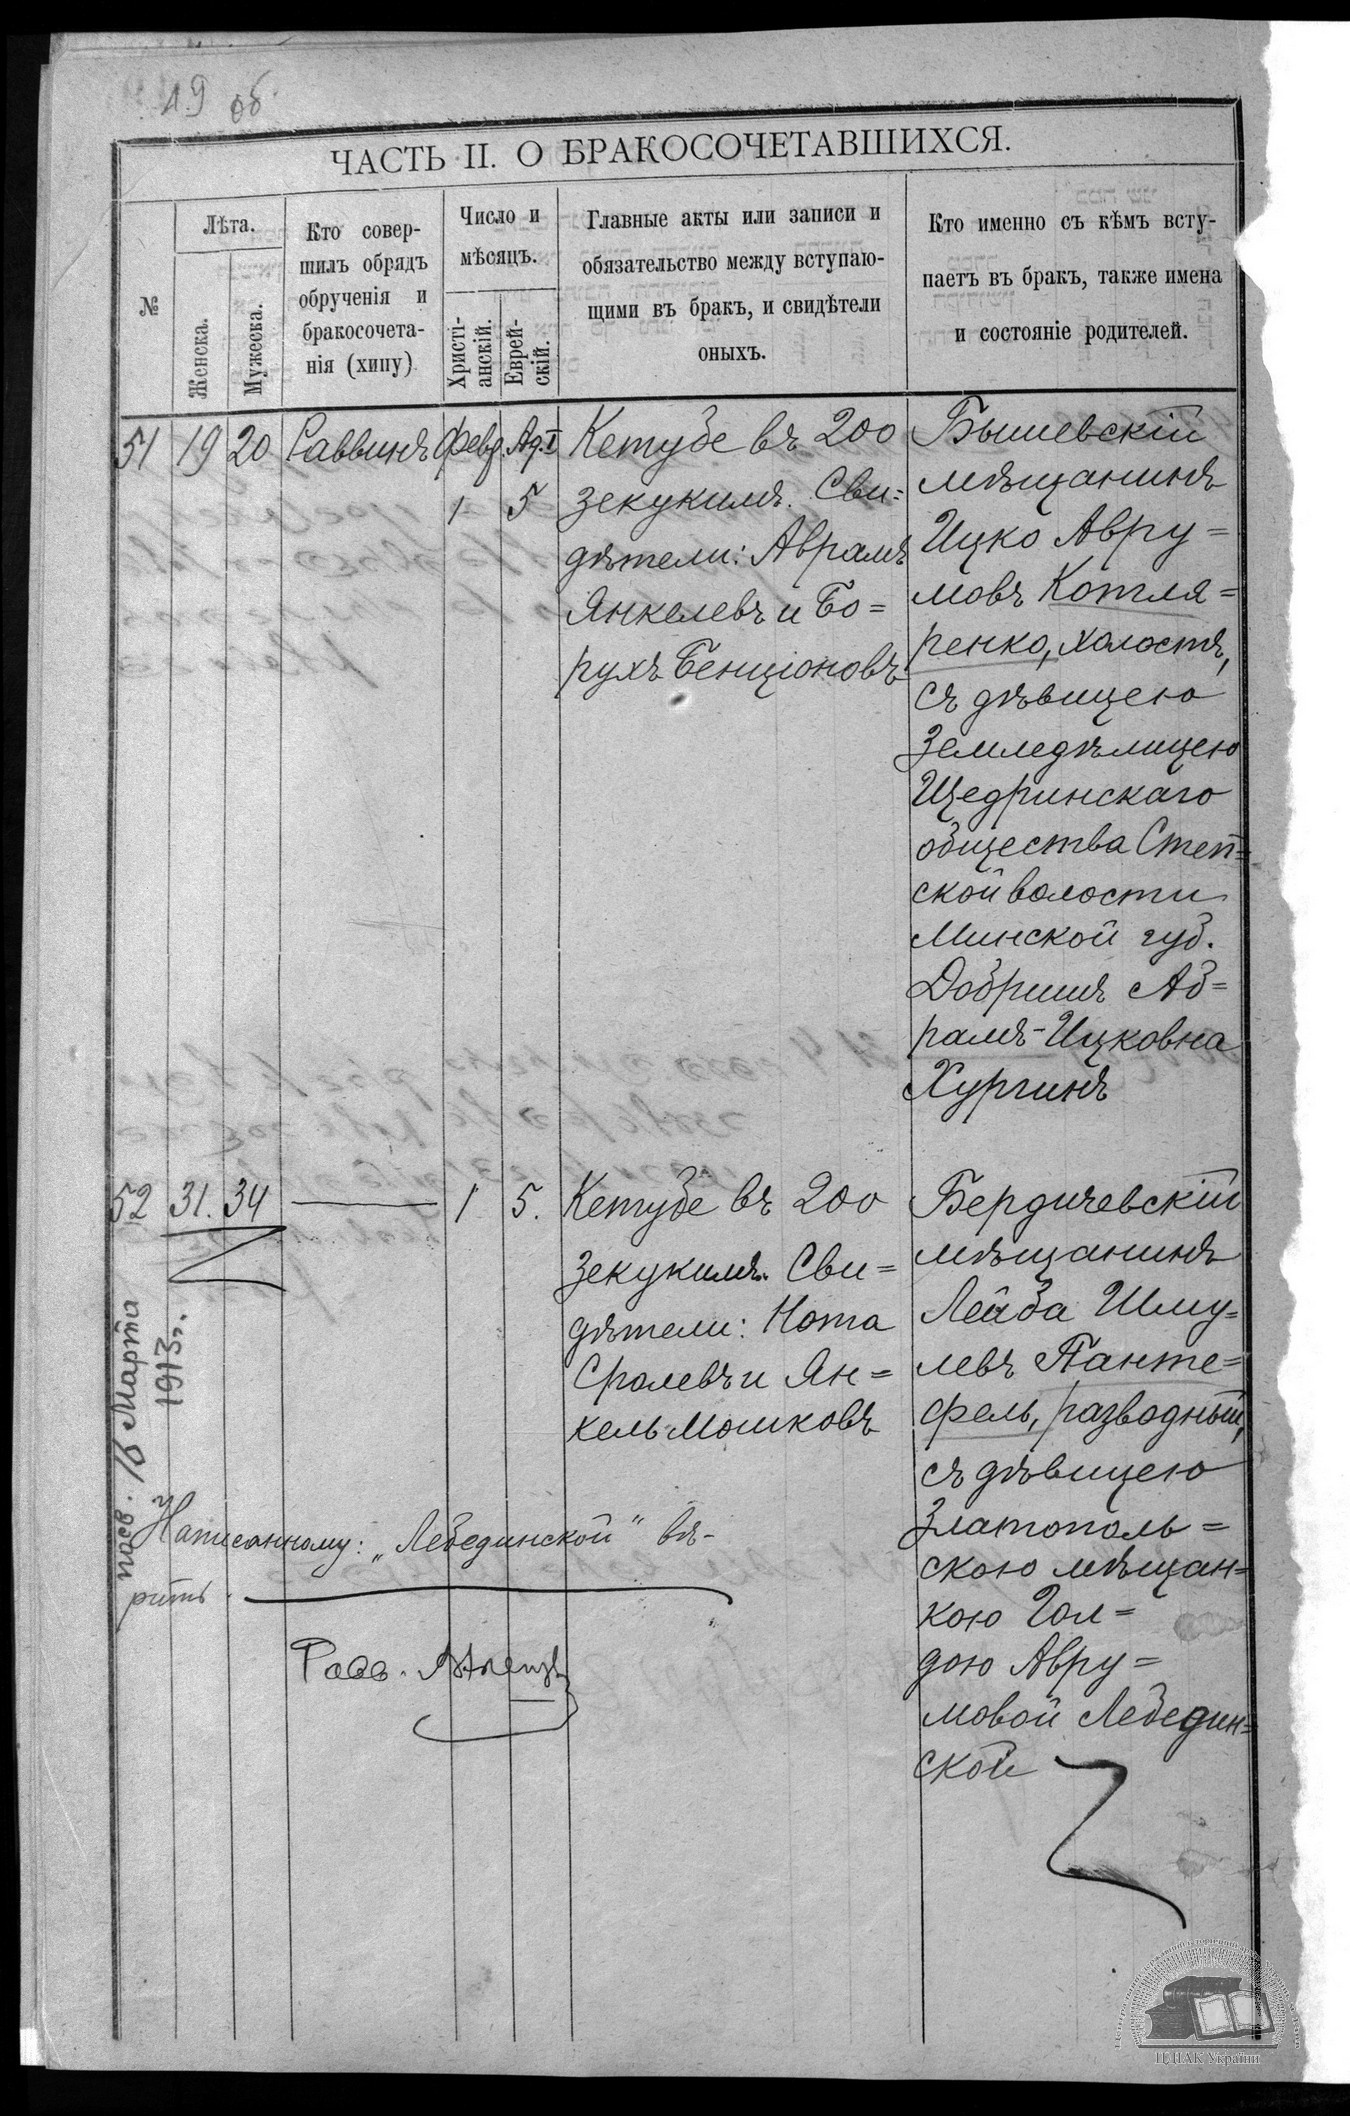 19 об.
ЧАСТЬ II. О БРАКОСОЧЕТАВШИХСЯ.
№
Лѣта.
Женска.
Мужеска.
Кто совер-
шилъ обрядъ
обрученія и
бракосочета-
нія (хипу)
Число и
мѣсяцъ.
Христі-
анскій.
Еврей-
скій.
Главные акты или записи и
обязательство между вступаю-
щими въ бракъ, и свидѣтели
оныхъ.
Кто именно съ кѣмъ всту-
паетъ въ бракъ, также имена
и состояніе родителей.
51 19 20 Саввинъ Февр. Ад. I
1 5
Кетубе въ 200
зекукимъ. Сви=
дѣтели: Аврамъ
Янкелевъ и Бо=
рухъ Бенціоновъ
Бышевскій
мѣщанинъ
Ицко Авру=
мовъ Котля=
ренко, холостъ,
съ дѣвицею
Земледѣлицею
Щедринскаго
общества Степ=
ской волости
Минской губ.
Добришъ Аб=
рамъ-Ицковна
Хургинъ
52 31. 34 — 1 5.
Кетубе въ 200
зекукимъ. Сви=
дѣтели: Нота
Сролевъ и Ян=
кель Мошковъ
Бердичевскій
мѣщанинъ
Лейба Шму=
левъ Панте=
фель, разводный,
съ дѣвицею
Златополь=
скою мѣщан=
кою Гол=
дою Авру=
мовой Лебедин=
ской
18 Марта
1913 г.
Написанному: „Лебединской“ вѣ-
рить.
Равв.
ЦДІАК України